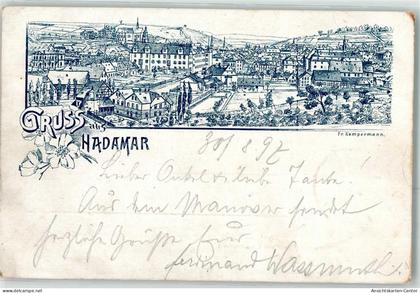 Gruss aus
HADAMAR
Fr. Kampermann.
30/8 97
Lieber Onkel u. liebe Tante!
Aus dem Manöver sendet
herzliche Grüße Euer
Ferdinand Wassmuth
Ansichtskarten-Center